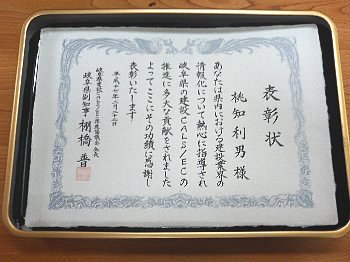 表彰状
桃知利男様
あなたは県内における建設業界の
情報化について熱心に指導され
岐阜県の建設CALS/ECの
推進に多大な貢献をされました
よってここにその功績に感謝し
表彰いたします
平成十七年二月二十二日
岐阜県建設CALS/EC推進協議会会長
岐阜県副知事 棚橋普